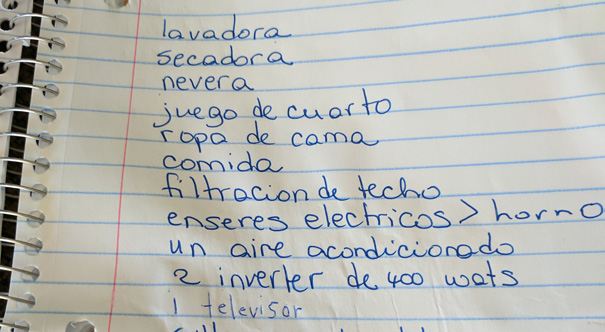 lavadora
secadora
nevera
juego de cuarto
ropa de cama
comida
filtracion de techo
enseres electricos > horno
un aire acondicionado
2 inverter de 400 wats
1 televisor